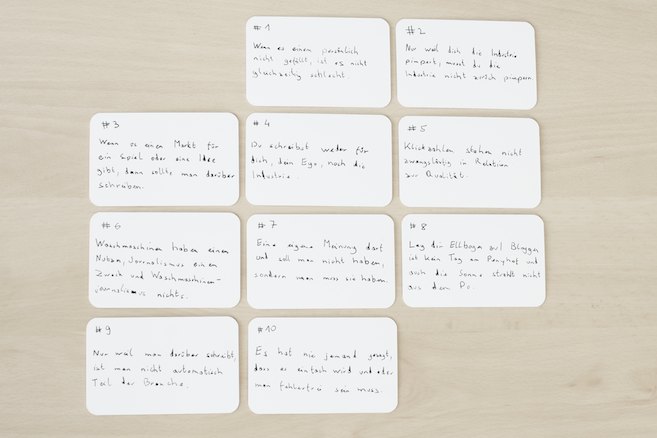 #1
Wenn es einem persönlich
nicht gefällt, ist es nicht
gleichzeitig schlecht.
#2
Nur weil dich die Industrie
pimpert, musst du die
Industrie nicht zurück pimpern.
#3
Wenn es einen Markt für
ein Spiel oder eine Idee
gibt, dann sollte man darüber
schreiben.
#4
Du schreibst weder für
dich, dein Ego, noch die
Industrie.
#5
Klickzahlen stehen nicht
zwangsläufig in Relation
zur Qualität.
#6
Waschmaschinen haben einen
Nutzen, Journalismus einen
Zweck und Waschmaschinen-
journalismus nichts.
#7
Eine eigene Meinung darf
und soll man nicht haben,
sondern man muss sie haben.
#8
Leg den Ellbogen auf! Bloggen
ist kein Tag am Ponyhof und
auch die Sonne strahlt nicht
aus dem Po.
#9
Nur weil man darüber schreibt,
ist man nicht automatisch
Teil der Branche.
#10
Es hat nie jemand gesagt,
dass es einfach wird und oder
man fehlerfrei sein muss.